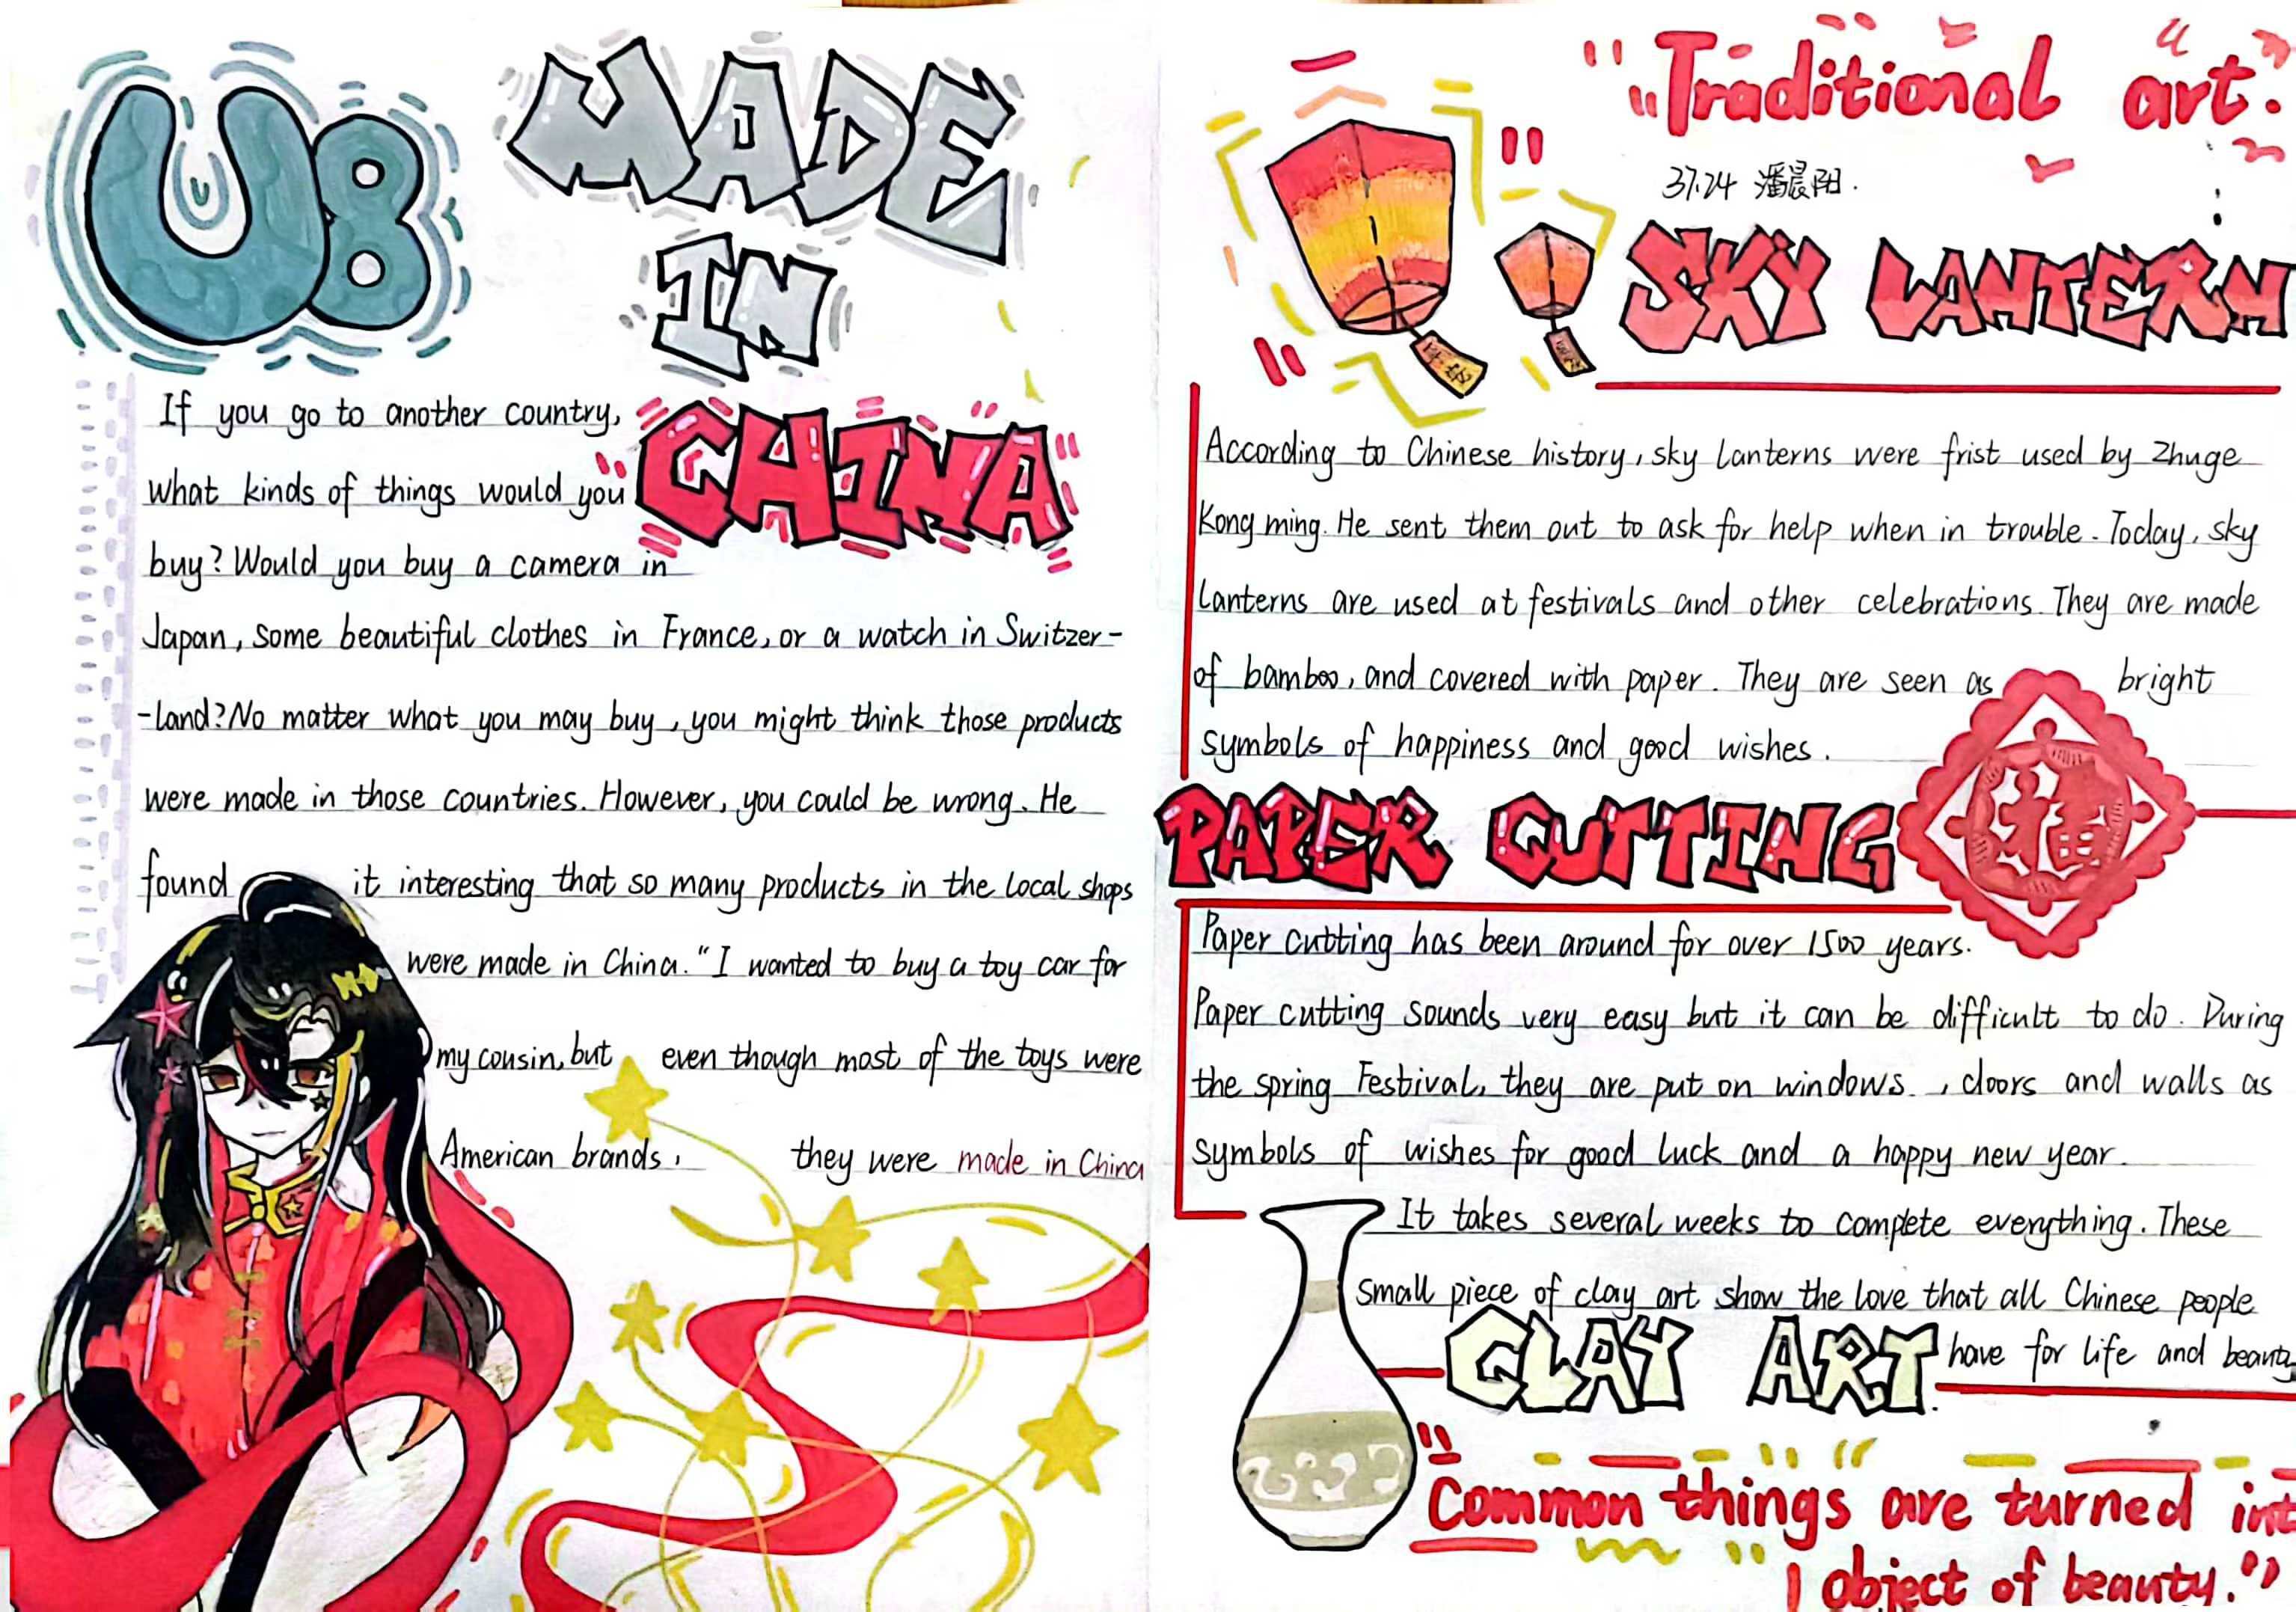 U8
MADE
IN
CHINA
If you go to another country,
what kinds of things would you
buy? Would you buy a camera in
Japan, some beautiful clothes in France, or a watch in Switzer-
-land? No matter what you may buy, you might think those products
were made in those countries. However, you could be wrong. He
found it interesting that so many products in the local shops
were made in China. "I wanted to buy a toy car for
my cousin, but even though most of the toys were
American brands, they were made in China
"Traditional art."
37.24 潘晨阳.
SKY LANTERN
According to Chinese history, sky lanterns were frist used by Zhuge
Kong ming. He sent them out to ask for help when in trouble. Today, sky
lanterns are used at festivals and other celebrations. They are made
of bamboo, and covered with paper. They are seen as bright
symbols of happiness and good wishes.
PAPER CUTTING
福
Paper cutting has been around for over 1500 years.
Paper cutting sounds very easy but it can be difficult to do. During
the spring Festival, they are put on windows., doors and walls as
symbols of wishes for good luck and a happy new year.
It takes several weeks to complete everything. These
small piece of clay art show the love that all Chinese people
have for life and beauty
CLAY ART
Common things are turned int
object of beauty."